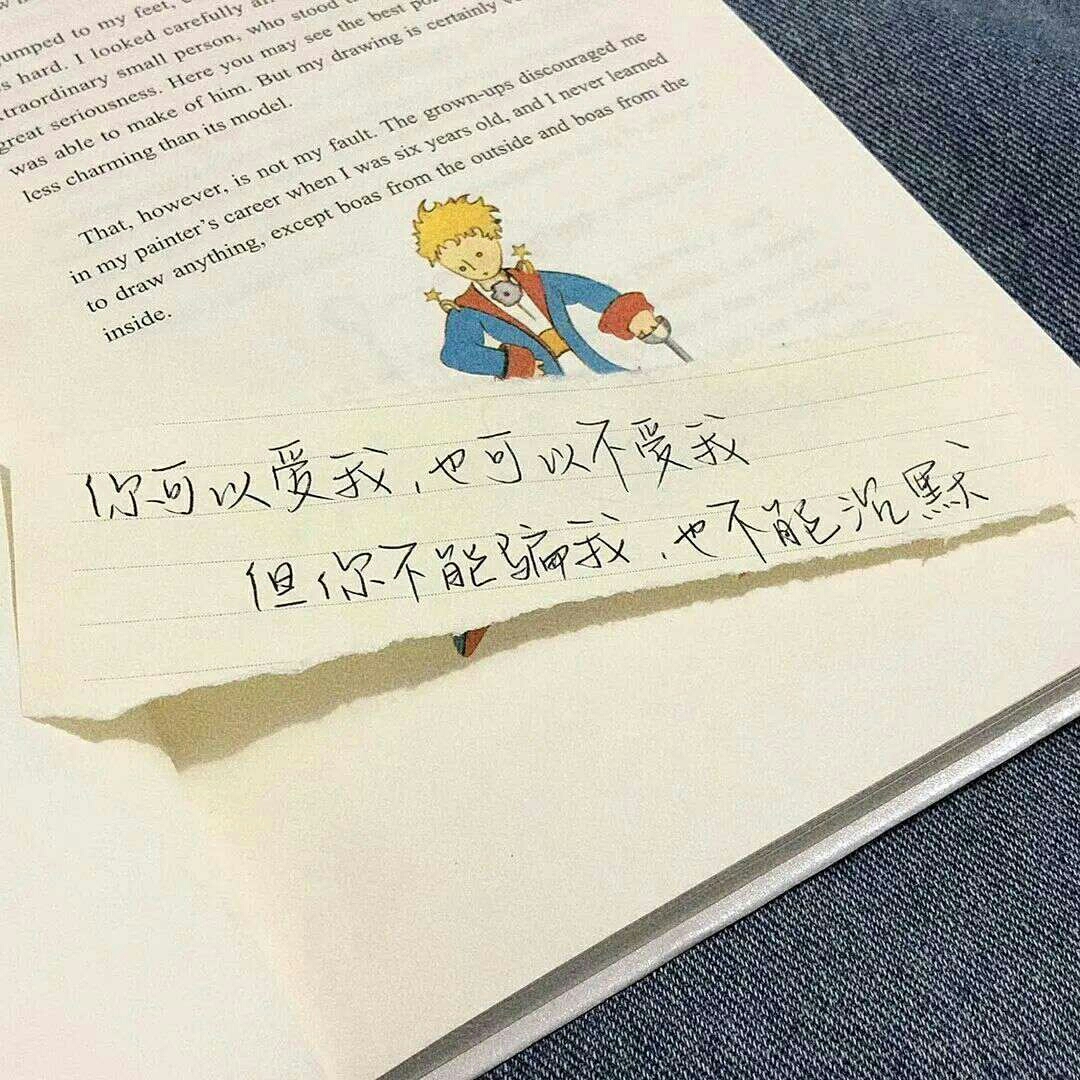 jumped to my feet,
hard. I looked carefully
extraordinary small person, who stood
great seriousness. Here you may see the best
was able to make of him. But my drawing is certainly
less charming than its model.
That, however, is not my fault. The grown-ups discouraged me
in my painter's career when I was six years old, and I never learned
to draw anything, except boas from the outside and boas from the
inside.
你可以爱我，也可以不爱我
但你不能骗我，也不能沉默